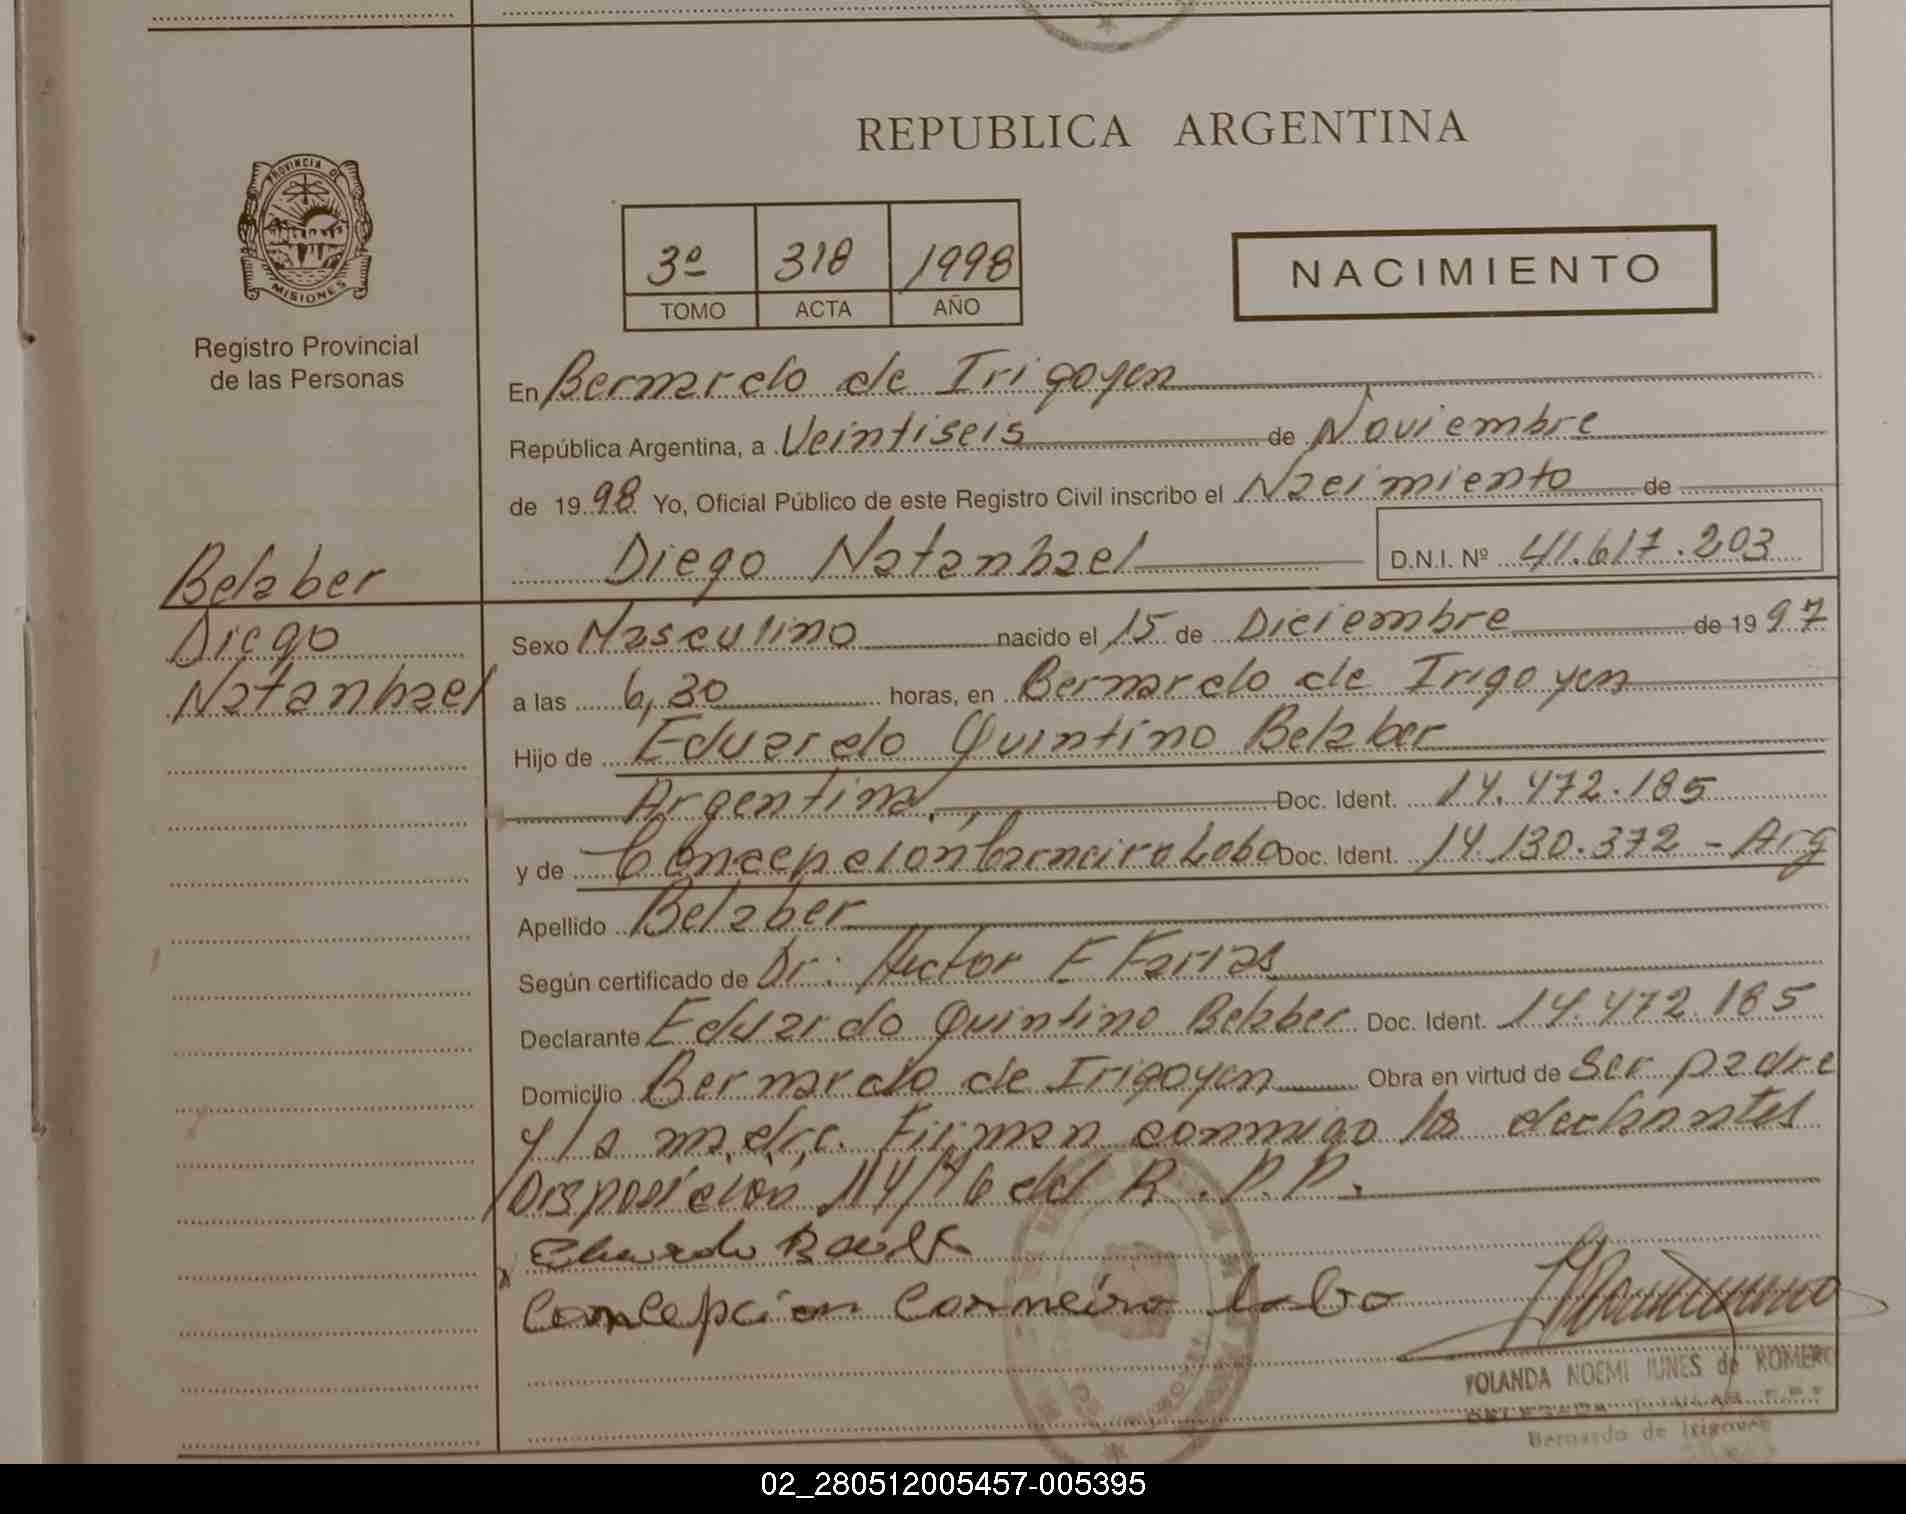 REPUBLICA ARGENTINA
PROVINCIA DE
MISIONES
Registro Provincial
de las Personas
3º 318 1998
TOMO ACTA AÑO
NACIMIENTO
En Bernardo de Irigoyen
República Argentina, a Veintiseis de Noviembre
de 1998 Yo, Oficial Público de este Registro Civil inscribo el Nacimiento de
Diego Natanhael D.N.I. Nº 41.617.203
Belaber
Diego
Natanhael
Sexo Masculino nacido el 15 de Diciembre de 1997
a las 6,30 horas, en Bernardo de Irigoyen
Hijo de Eduardo Quintino Belaber
Argentina, Doc. Ident. 14.472.185
y de Concepción Carneiro Lobo Doc. Ident. 14.130.372 - Arg
Apellido Belaber
Según certificado de Dr: Hector E Farias
Declarante Eduardo Quintino Belaber Doc. Ident. 14.472.185
Domicilio Bernardo de Irigoyen Obra en virtud de Ser padre
y la madre. Firman conmigo los declarantes
Disposición 114/96 del R.P.P.
Eduardo
Concepcion Carneiro Lobo
YOLANDA NOEMI IUNES de ROMERO
DELEGADA TITULAR
Bernardo de Irigoyen
02_280512005457-005395